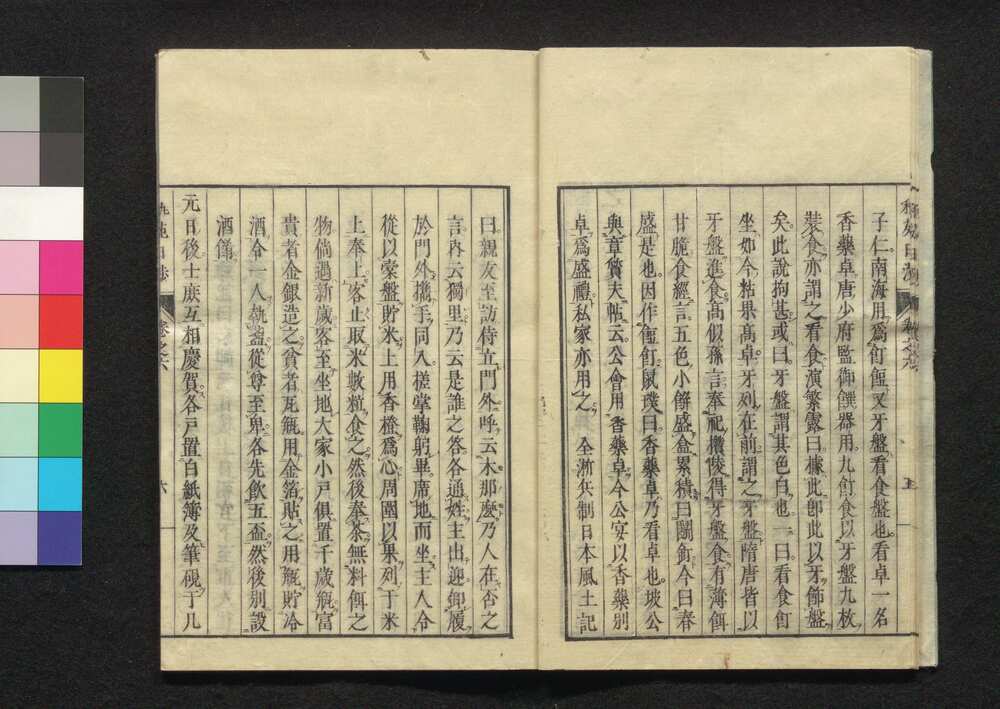 子仁南海用爲飣䭃又牙盤看食盤也看卓一名
香藥卓唐少府監御饌器用九飣食以牙盤九枚
裝食亦謂之看食演繁露曰據此卽此以牙飾盤
矣此說拘甚或曰牙盤謂其色白也一曰看食飣
坐如今粘果高卓牙列在前謂之牙盤隋唐皆以
牙盤進食高似孫言奉祀攢陵得牙盤食有薄餌
甘脆食經言五色小餅盛盒累積曰鬬飣今日春
盛是也因作䭃飣鼠璞曰香藥卓乃看卓也坡公
與章質夫帖云公會用香藥卓今公宴以香藥別
卓爲盛禮私家亦用之 全浙兵制日本風土記
五
曰親友至訪侍立門外呼云木那麽乃人在否之
言內云獨里乃云是誰之答各通姓主出迎卸履
於門外攜手同入搓掌鞠躬畢席地而坐主人令
從以槖盤貯米上用香橙爲心周圍以果列于米
上奉上客止取米數粒食之然後奉茶無料餌之
物倘遇新歲客至坐地大家小戸俱置千歲甁富
貴者金銀造之貧者瓦甁用金箔貼之用甁貯冷
酒令一人執壺從尊至卑各先飮五盃然後別設
酒儀
元日後士庶互相慶賀各戸置白紙簿及筆硯于几
卷之六
六